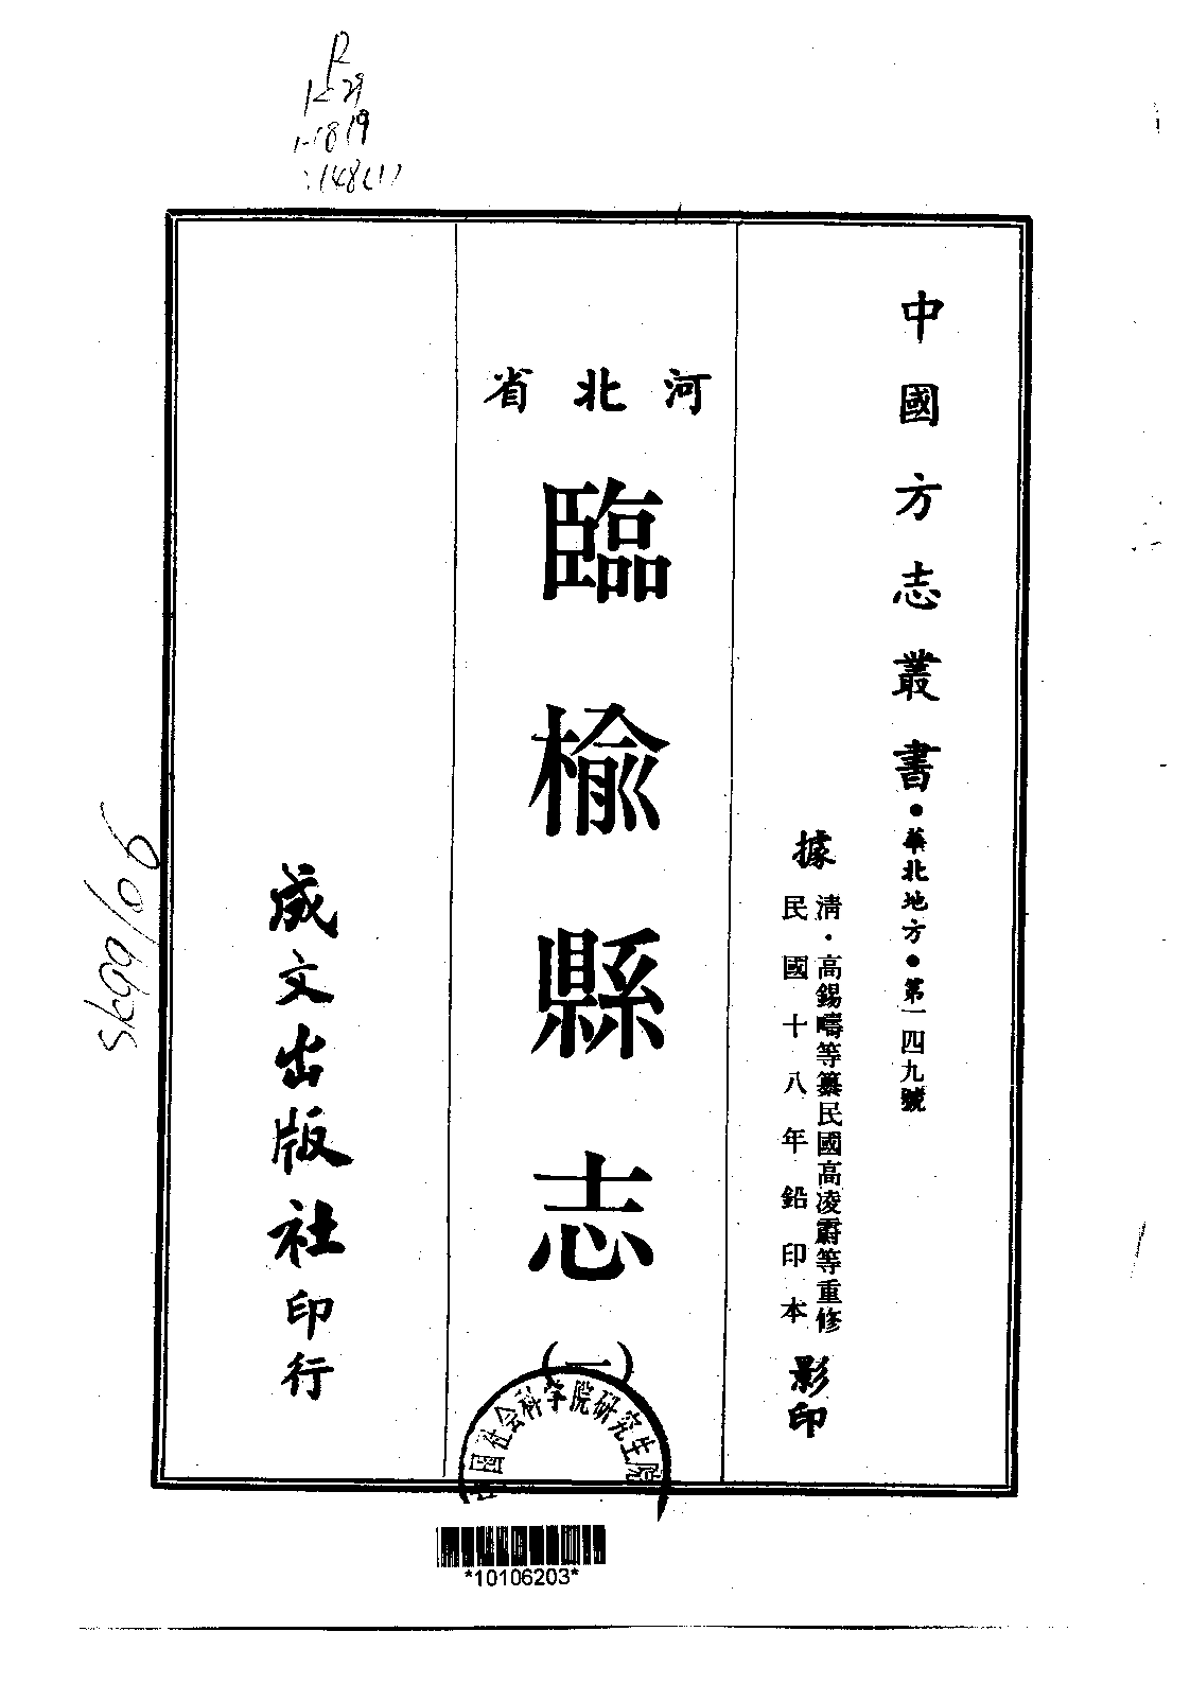 中國方志叢書●華北地方●第一四九號
據
清・高錫疇等纂民國高凌霨等重修
民國十八年鉛印本
影印
河北省
臨榆縣志(一)
成文出版社印行
中国社会科学院研究生院
*10106203*
K29
148(1)